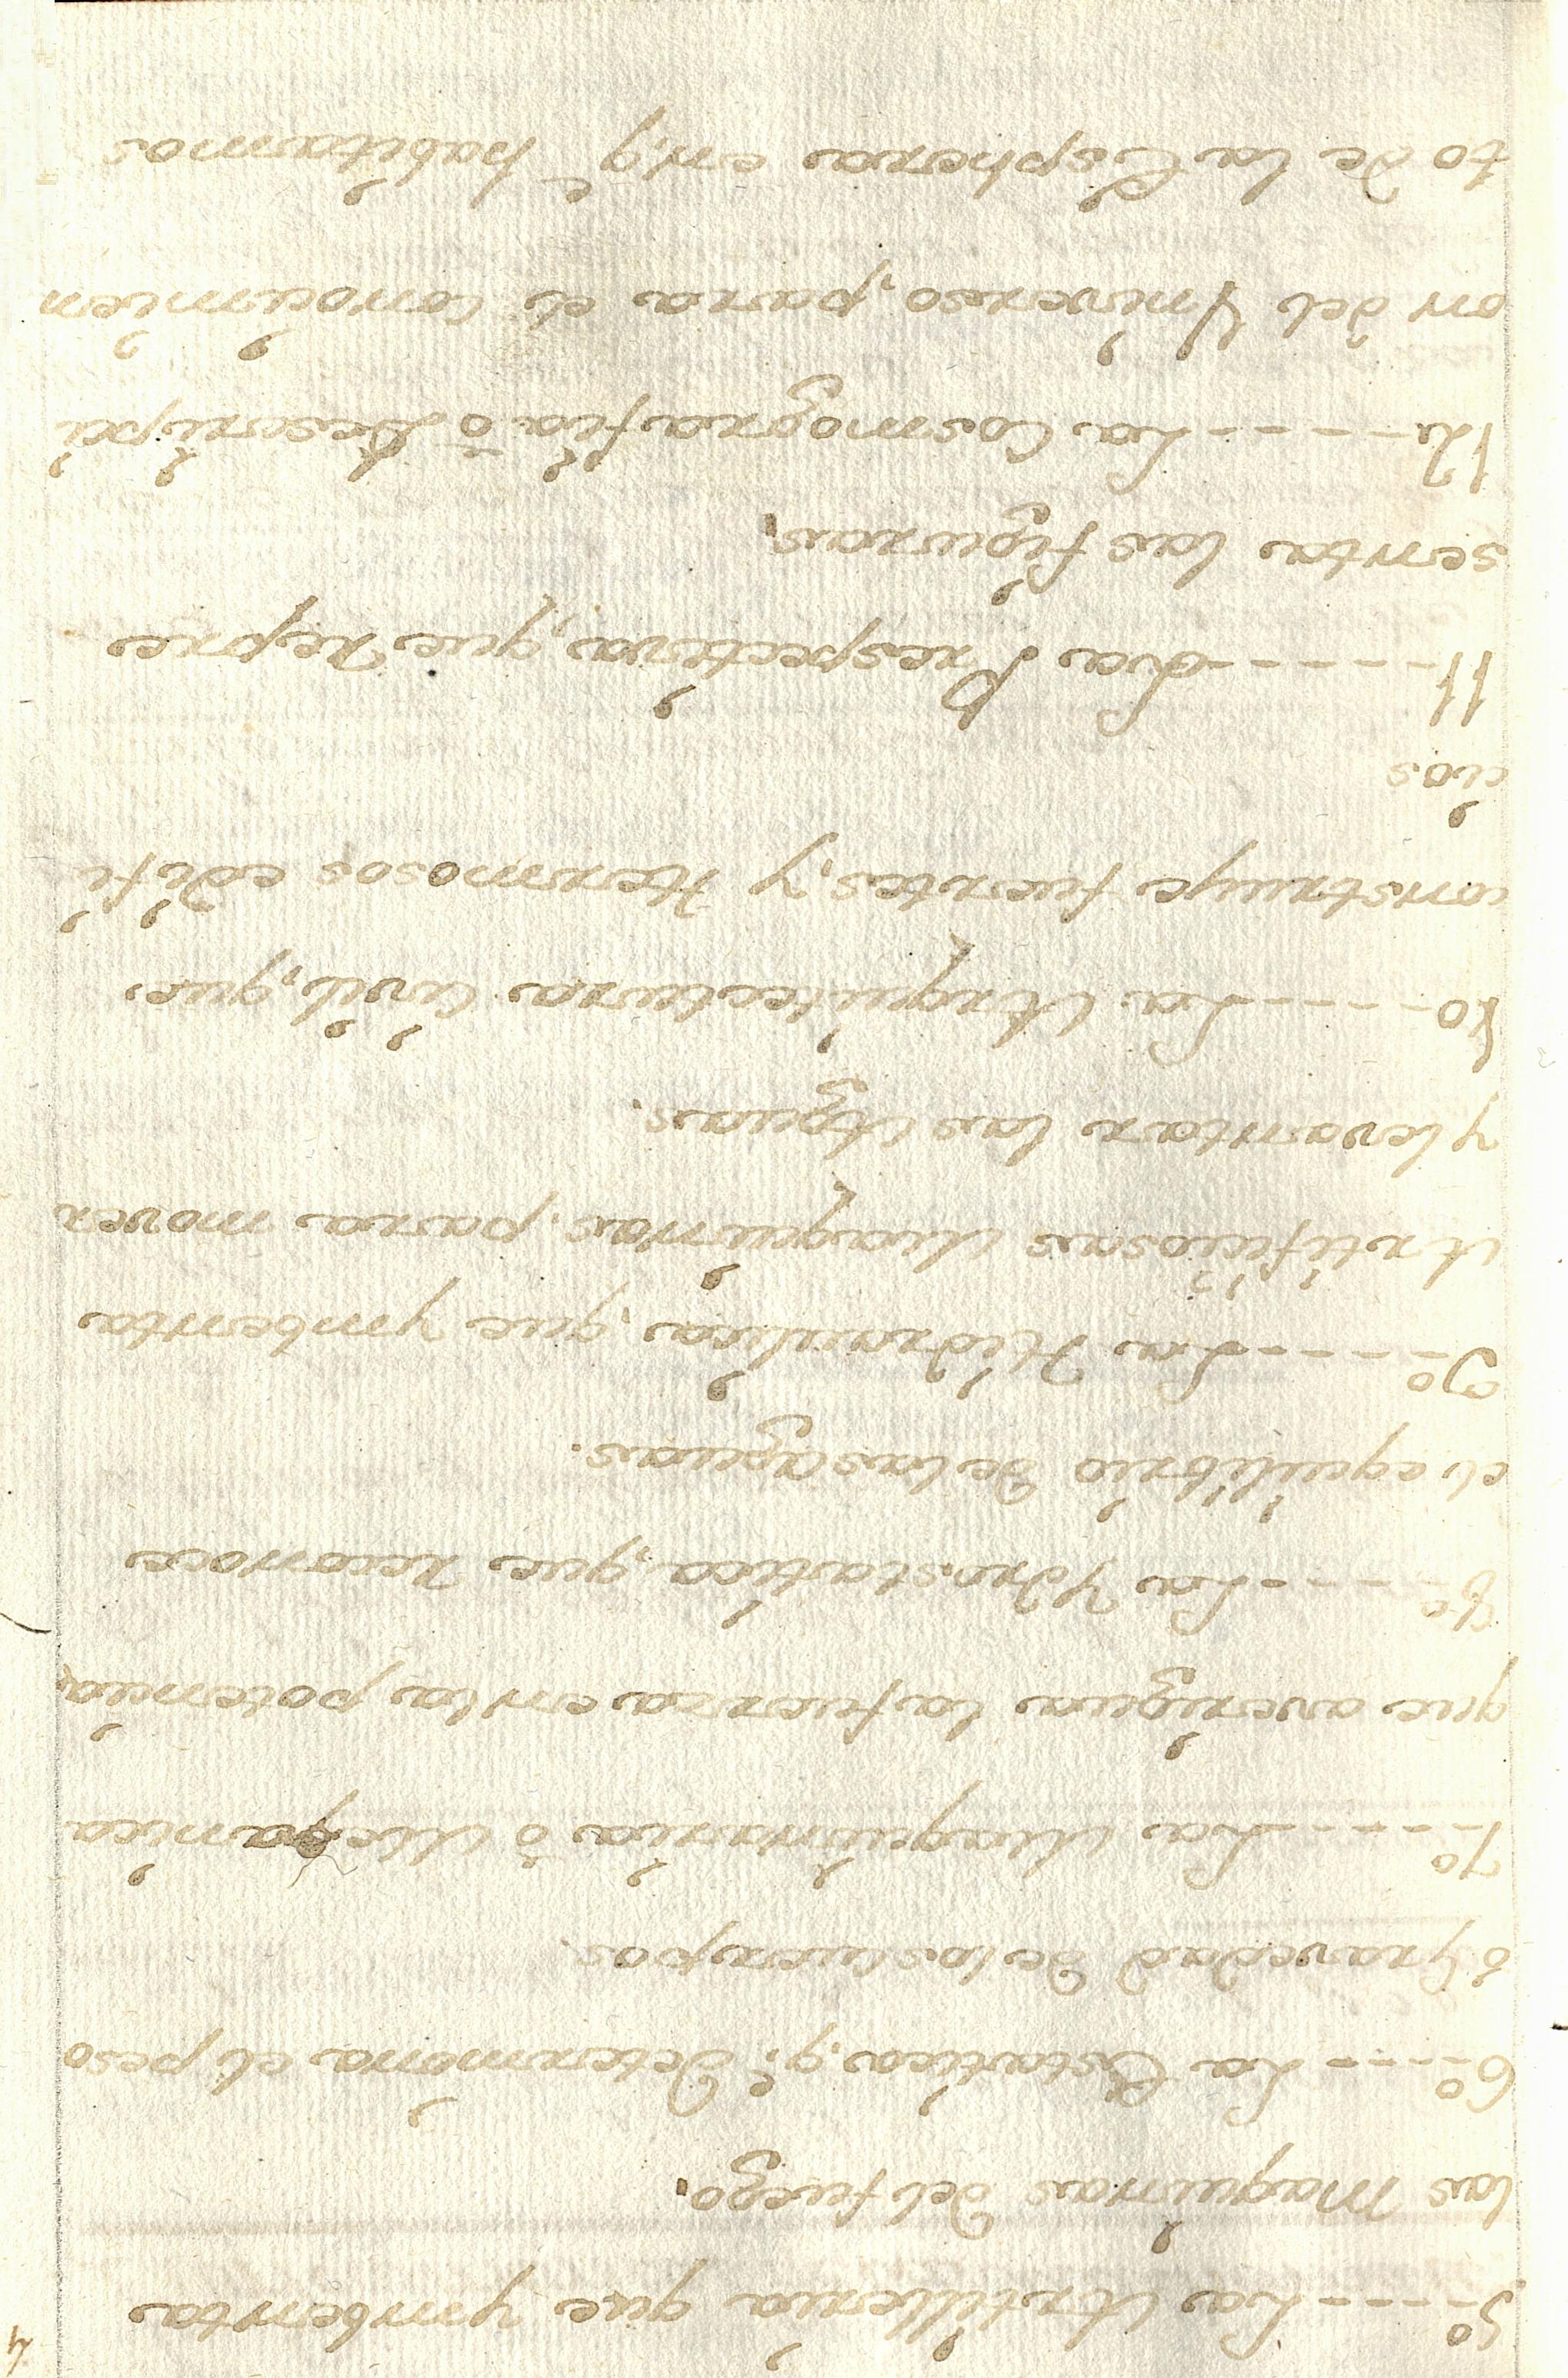 4
5º---- La Artilleria que ymbenta
las Maquinas del fuego.
6º---- La Estatica, q.e determina el peso
ò gravedad de los cuerpos.
7º---- La Maquinaria ò Mecanica
que averigua la fuerza en la potencia,
8º---- La Ydrostatica, que reconoce
el equilibrio de las aguas.
9º---- La Hidraulica, que ymbenta
Artificiosas Maquinas, para mover
y levantar las Aguas.
10---- La Arquitectura Civil, que
construye fuertes, y Hermosos edifi
cios
11---- La Prespectiva, que repre
senta las figuras.
12---- La Cosmografia ò Descripci
on del Vniverso, para el conocimien
to de la Esphera en q.e habitamos